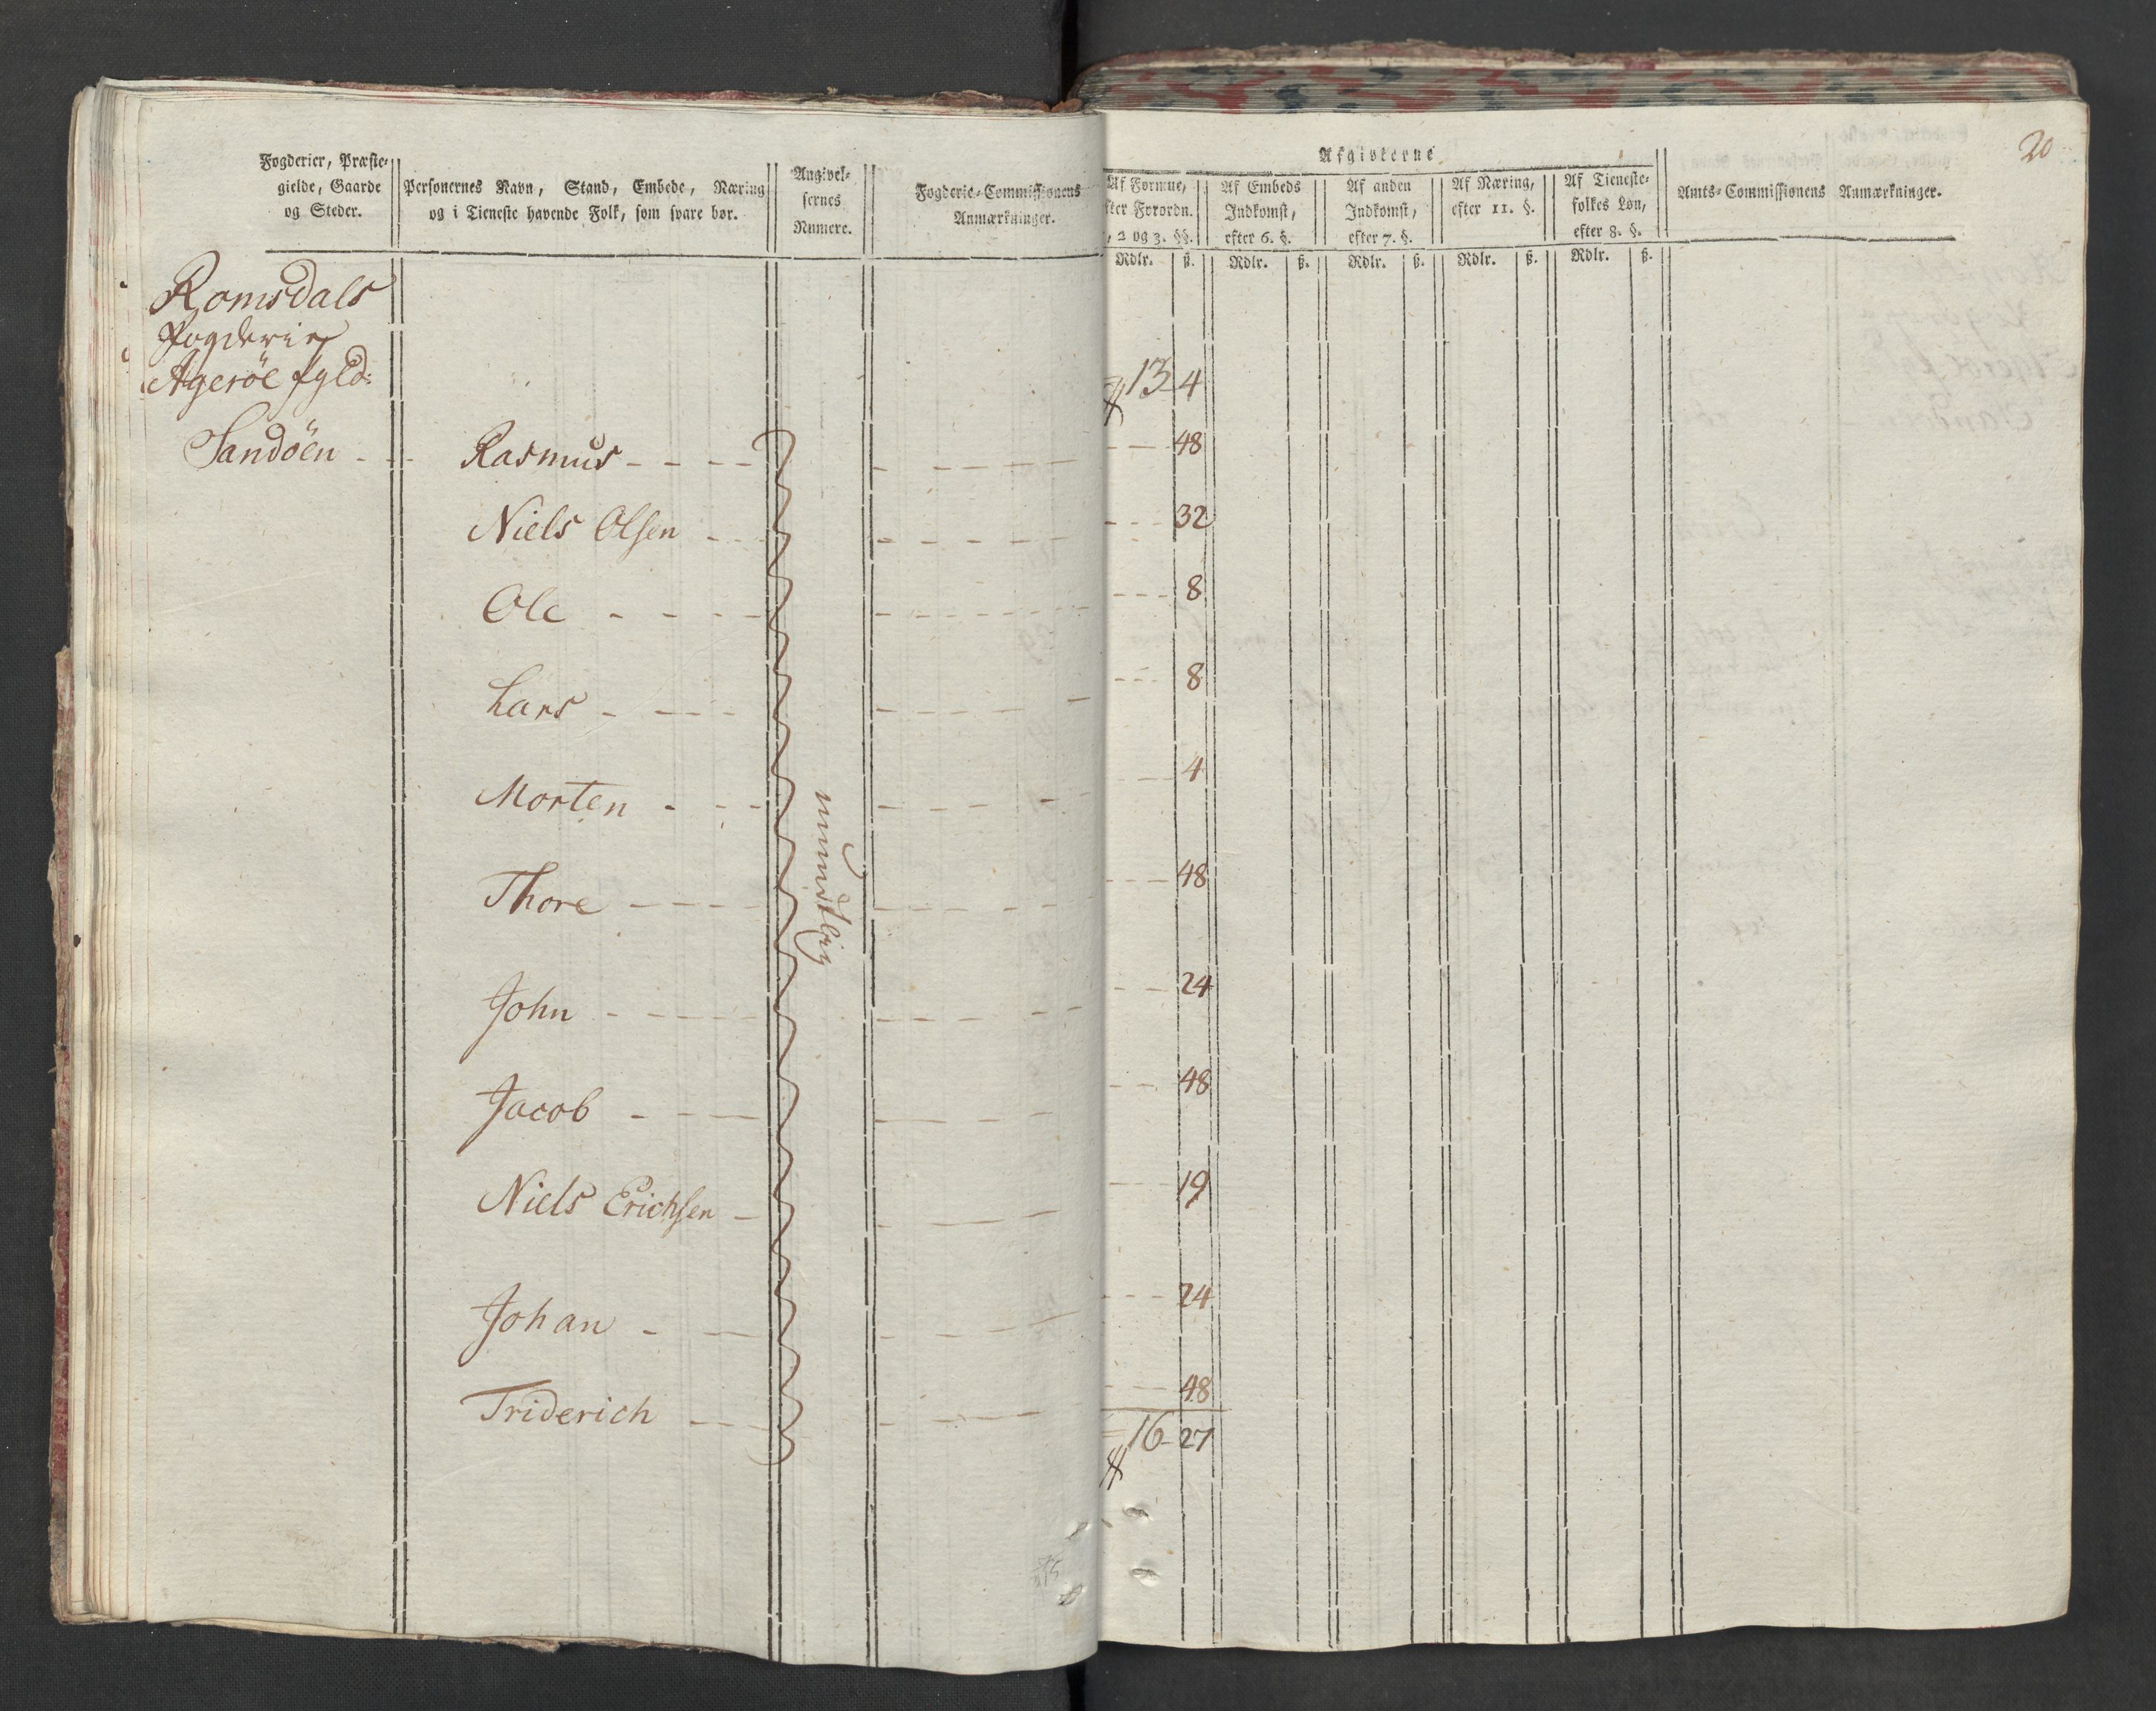 Fogderier, Præste-
gielde, Gaarde
og Steder.
Personernes Navn, Stand, Embede, Næring
og i Tieneste havende Folk, som svare bør.
Angivel-
sernes
Numere.
Fogderie-Commissionens
Anmærkninger.
Romsdals
Fogderie
Agerøe
Sandøen - -
Rasmus - - - -
Niels Olsen - - -
Ole - - - -
Lars - - - -
Morten - - -
Thore - - - -
John - - - -
Jacob - - -
Niels Erichsen -
Johan - -
Friderich - -
mundtlig
20
Afgivterne
Af Formue,
fter Forordn.
, 2 og 3. §§.
Af Embeds
Indkomst,
efter 6. §.
Af anden
Indkomst,
efter 7. §.
Af Næring,
efter 11. §.
Af Tieneste-
folkes Løn,
efter 8. §.
Amts-Commissionens Anmærkninger.
Rdlr. ß. Rdlr. ß. Rdlr. ß. Rdlr. ß. Rdlr. ß.
13 - 4
- - 48
- - - 32
- - - 8
- - - 8
- - 4
- - - 48
- - 24
- - 48
- - 19
- - - 24
- - - 48
16 - 27